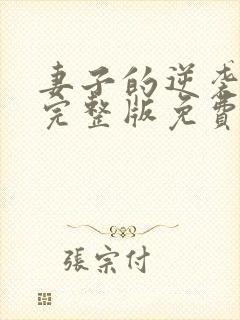 妻子的逆袭
完整版免費
張宗付